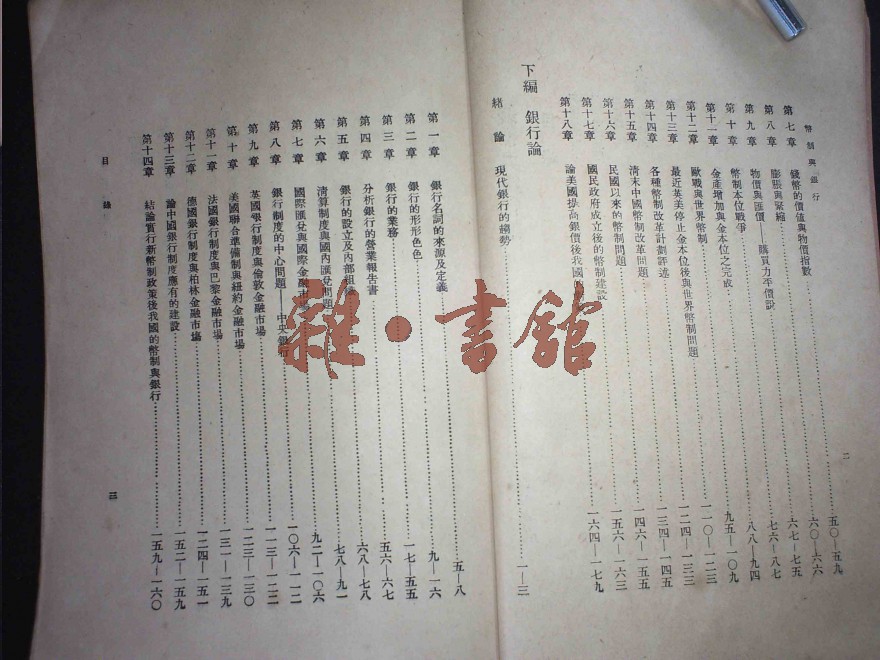 幣制與銀行
第七章 錢幣的價值與物價指數 五〇—五九
第八章 膨脹與緊縮 六〇—六六
第九章 物價與匯價——購買力平價說 六七—七五
第十章 幣制本位戰爭 七六—八七
第十一章 金產增加與金本位之完成 八八—九四
第十二章 歐戰與世界幣制 九五—一〇九
第十三章 最近英美停止金本位後與世界幣制問題 一一〇—一二三
第十四章 各種幣制改革計劃評述 一二四—一三三
第十五章 清末中國幣制改革問題 一三四—一四五
第十六章 民國以來的幣制問題 一四六—一五五
第十七章 國民政府成立後的幣制建設 一五六—一六三
第十八章 論美國提高銀價後我國的 一六四—一七九
二
下編 銀行論
緒論 現代銀行的趨勢 一—三
第一章 銀行名詞的來源及定義 五—八
第二章 銀行的形形色色 九—一六
第三章 銀行的業務 一七—五五
第四章 分析銀行的營業報告書 五六—六七
第五章 銀行的設立及內部組織 六八—七八
第六章 清算制度與國內匯兌問題 七八—九一
第七章 國際匯兌與國際金融市場 九二—一〇六
第八章 銀行制度的中心問題——中央銀行 一〇六—一一二
第九章 英國銀行制度與倫敦金融市場 一一三—一二二
第十章 美國聯合準備制與紐約金融市場 一二三—一三〇
第十一章 法國銀行制度與巴黎金融市場 一三一—一三九
第十二章 德國銀行制度與柏林金融市場 一二四—一五一
第十三章 論中國銀行制度應有的建設 一五二—一五九
第十四章 結論實行新幣制政策後我國的幣制與銀行 一五九—一六〇
目錄
三
雜·書館